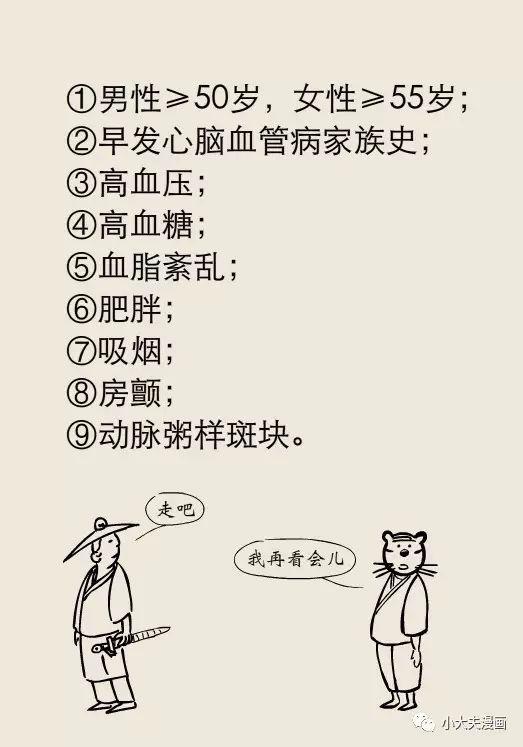 ①男性≥50岁，女性≥55岁；
②早发心脑血管病家族史；
③高血压；
④高血糖；
⑤血脂紊乱；
⑥肥胖；
⑦吸烟；
⑧房颤；
⑨动脉粥样斑块。
走吧
我再看会儿
小大夫漫画